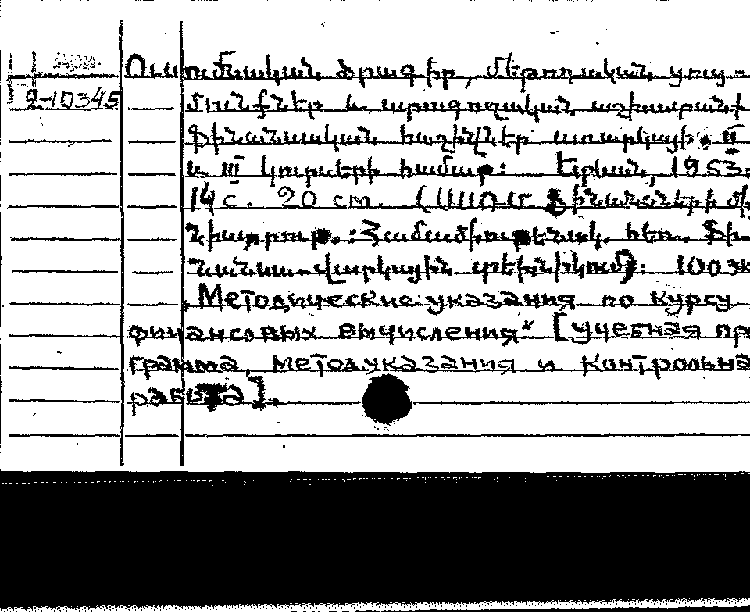 Ուսումնական ծրագիր, մեթոդական ցուց-
2-10345 մունքներ և արտադրական աշխատանք
Ֆինանսական հաշիվներ առարկայի. II
և III կուրսերի համար: Երևան, 1953.
14 с. 20 cm. (ՍՍՌՄ Ֆինանսների մի-
նիստրութ. : Համամիութենակ. հեռ. Ֆի-
նանսա-վարկային տեխնիկում): 100 экз
„Методические указания по курсу
финансовых вычисления" [учебная про
грамма, метод.указания и контрольна
работа].